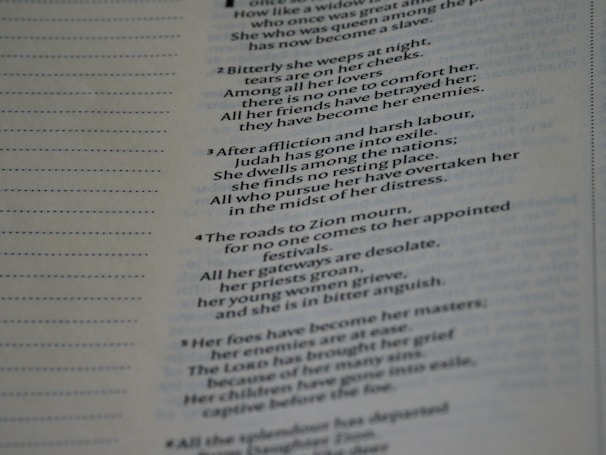 once so
How like a widow is
who once was great among
She who was queen among the p
has now become a slave.
2 Bitterly she weeps at night,
tears are on her cheeks.
Among all her lovers
there is no one to comfort her.
All her friends have betrayed her;
they have become her enemies.
3 After affliction and harsh labour,
Judah has gone into exile.
She dwells among the nations;
she finds no resting place.
All who pursue her have overtaken her
in the midst of her distress.
4 The roads to Zion mourn,
for no one comes to her appointed
festivals.
All her gateways are desolate,
her priests groan,
her young women grieve,
and she is in bitter anguish.
5 Her foes have become her masters;
her enemies are at ease.
The LORD has brought her grief
because of her many sins.
Her children have gone into exile,
captive before the foe.
6 All the splendour has departed
from Daughter Zion.